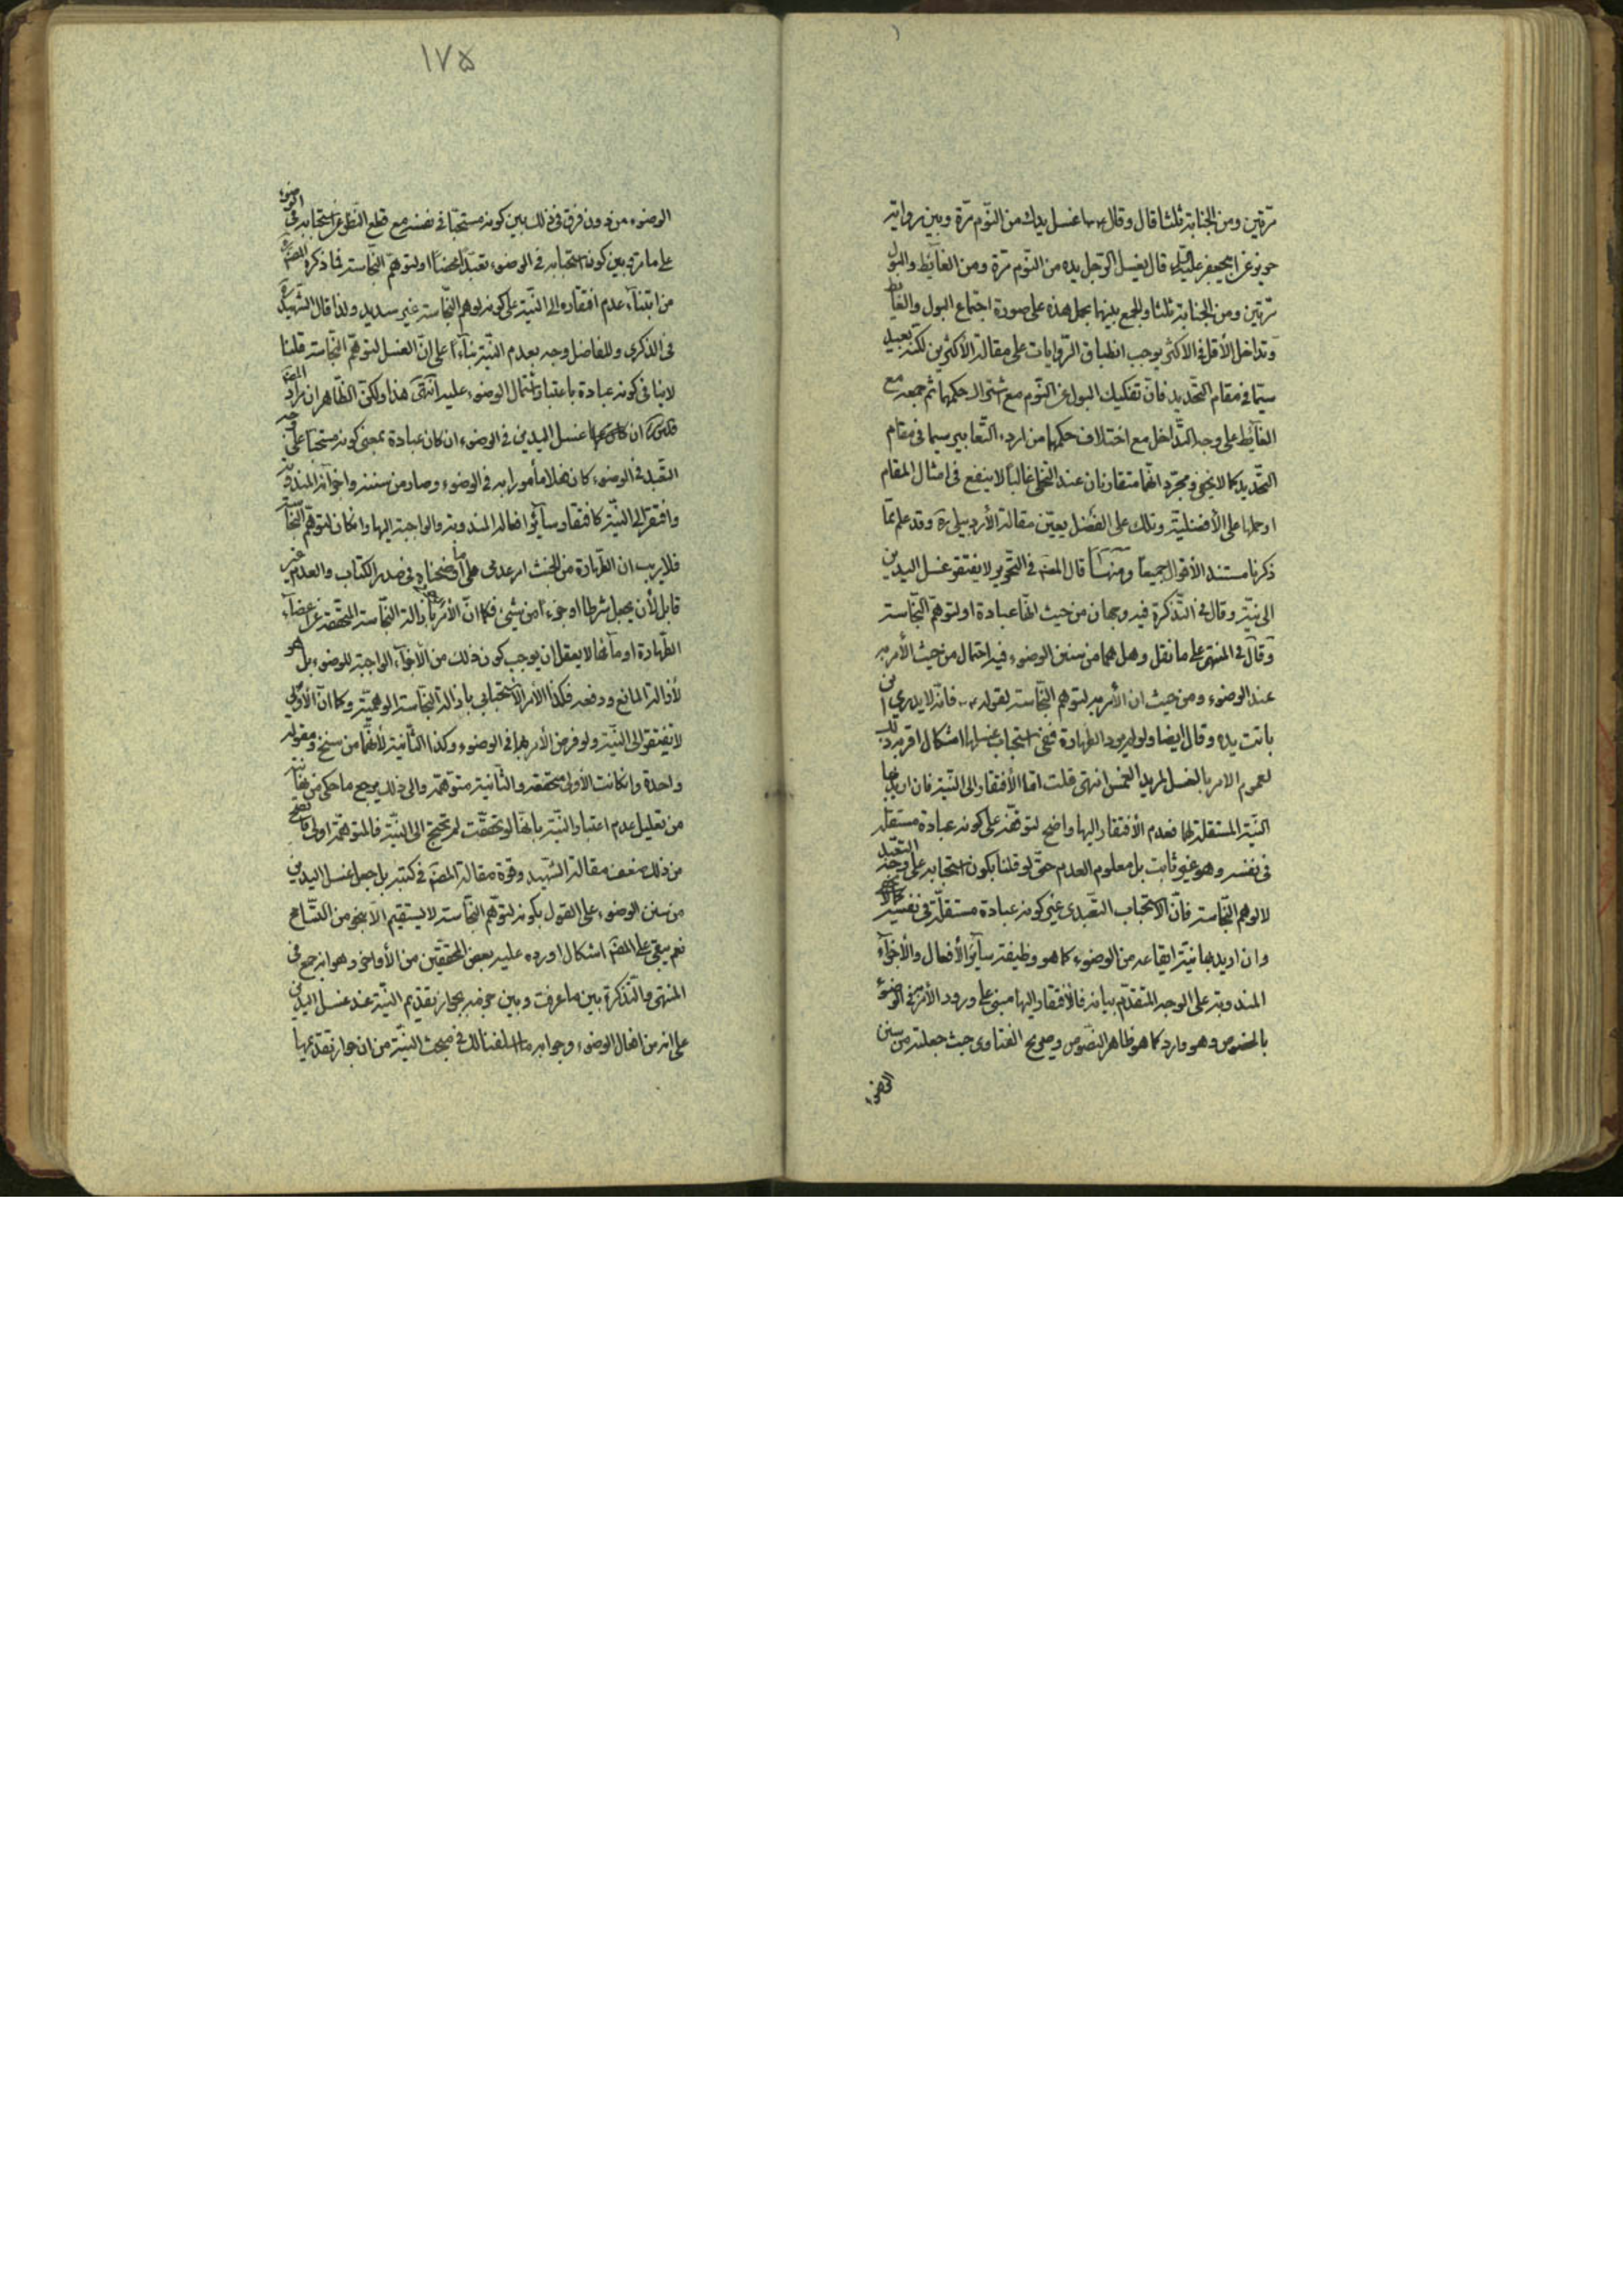 مرّتين ومن الجنابة ثلثا قال وقال ع اغسل يدك من النّوم مرّة وبين رواية
حريز عن ابيجعفر عليه السلم قال يغسل الرّجل يده من النّوم مرّة ومن الغائط والبول
مرّتين ومن الجنابة ثلثا والجمع بينهما بحمل هذه على صورة اجتماع البول والغائط
وتداخل الأقل فى الأكثر يوجب انطباق الرّوايات على مقالة الأكثرين لكنّه بعيد
سيّما فى مقام التّحديد فانّ تفكيك البول عن النّوم مع حكمهما ثم جمعه مع
الغائط على وجه التّداخل مع اختلاف حكمهما من اردء التّعابير سيما فى مقام
التّحديد كما لا يخفى ومجرّد انّهما متقارنان عند التخلى غالبا لا ينفع فى امثال المقام
او حملها على الأفضليّة وتلك على الفضل يعيّن مقالة الأردبيلى ره وقد علم ممّا
ذكرنا مستند الأقوال جميعا ومنها قال المصّ فى التّحرير لا يفتقر غسل اليدين
الى نيّة وقال فى التّذكرة فيه وجهان من حيث انّها عبادة او لتوهّم النّجاسة
وقال فى المنتهى على ما نقل وهل هما من سنن الوضوء فيه احتمال من حيث الأمر به
عند الوضوء ومن حيث ان الأمر به لتوهم النّجاسة لقوله ع فانّه لا يدرى اين
باتت يده وقال ايضا ولو لم يرد الطهارة ففى استحباب غسلها اشكال اقربه ذلك
لعموم الامر بالغسل لمريد الغمس انتهى قلت امّا الأفتقار الى النّيّة فان اريد بها
النّيّة المستقلة لها فعدم الأفتقار اليها واضح لتوقّفه على كونه عبادة مستقلة
فى نفسه وهو غير ثابت بل معلوم العدم حتّى لو قلنا بكون استحبابه على وجه التعبّد
لا لوهم النّجاسة فانّ الاستحباب التعبّدى غير كونه عبادة مستقلّة فى نفسه
وان اريد بها نيّة ايقاعه من الوضوء كما هو وظيفة سائر الأفعال والأجزاء
المندوبة على الوجه المتقدّم بيانه فالأفتقار اليها مبنى على ورود الأمر به فى الوضوء
بالخصوص وهو وارد كما هو ظاهر النّصوص وصريح الفتاوى حيث جعلته من سنن
الوضوء
١٧٥
الوضوء من دون فرق فى ذلك بين كونه مستحبّا فى نفسه مع قطع النّظر عن استحبابه فى الوضوء
على ما مرّ وبين كون استحبابه فى الوضوء تعبّدا محضا او لتوهّم النّجاسة فما ذكره المصّ
من ابتناء عدم افتقاره الى النيّة على كونه لوهم النّجاسة غير سديد ولذا قال الشّهيد
فى الذكرى وللفاضل وجه بعدم النّيّة بناءً على انّ الغسل لتوهّم النّجاسة قلنا
لا ينافى كونه عبادة باعتبار اشتمال الوضوء عليه انتهى هذا ولكنّ الظّاهر ان مراد المصّ
قدس سره ان غسل اليدين فى الوضوء ان كان عبادة بمعنى كونه مستحبّا على وجه
التّعبّد فى الوضوء كان فعلا مأمورا به فى الوضوء وصار من سننه واجزائه المندوبة
وافتقر الى النيّة كافتقار سائر افعاله المندوبة والواجبة اليها وان كان لتوهّم النّجاسة
فلا ريب ان الطّهارة من الخبث امر عدمى على ما اوضحناه فى صدر الكتاب والعدم غير
قابل لأن يجعل شرطا او جزءا من شيئ فكما انّ الأمر بازالة النّجاسة المتحقّقة عن اعضاء
الطّهارة او مائها لا يعقل ان يوجب كون ذلك من الأجزاء الواجبة للوضوء بل هو
لأزالة المانع ودفعه فكذا الأمر الأستحبابى بازالة النّجاسة الوهميّة وكما انّ الأولى
لا تفتقر الى النّيّة ولو فرض الأمر بها فى الوضوء وكذا الثّانية لأنّهما من سنخ ومقولة
واحدة وان كانت الأولى متحققة والثّانية متوّهمة والى ذلك يرجع ما حكى عن
من تعليل عدم اعتبار النّيّة بانّها لو تحقّقت لم تحتج الى النّيّة فالمتوهّمة اولى فاتضح
من ذلك ضعف مقالة الشّهيد وقوة مقالة المصّ فى كتبه بل جعل غسل اليدين
من سنن الوضوء على القول بكونه لتوهّم النّجاسة لا يستقيم الّا بنحو من التّسامح
نعم يبقى على المصّ اشكال اورده عليه بعض المحقّقين من الأواخر وهو انه جمع فى
المنتهى والتّذكرة بين ما عرفت وبين جزمه بجواز تقديم النّيّة عند غسل اليدين
على انه من افعال الوضوء وجوابه ما اسلفنا لك فى مبحث النّيّة من ان جواز تقديمها